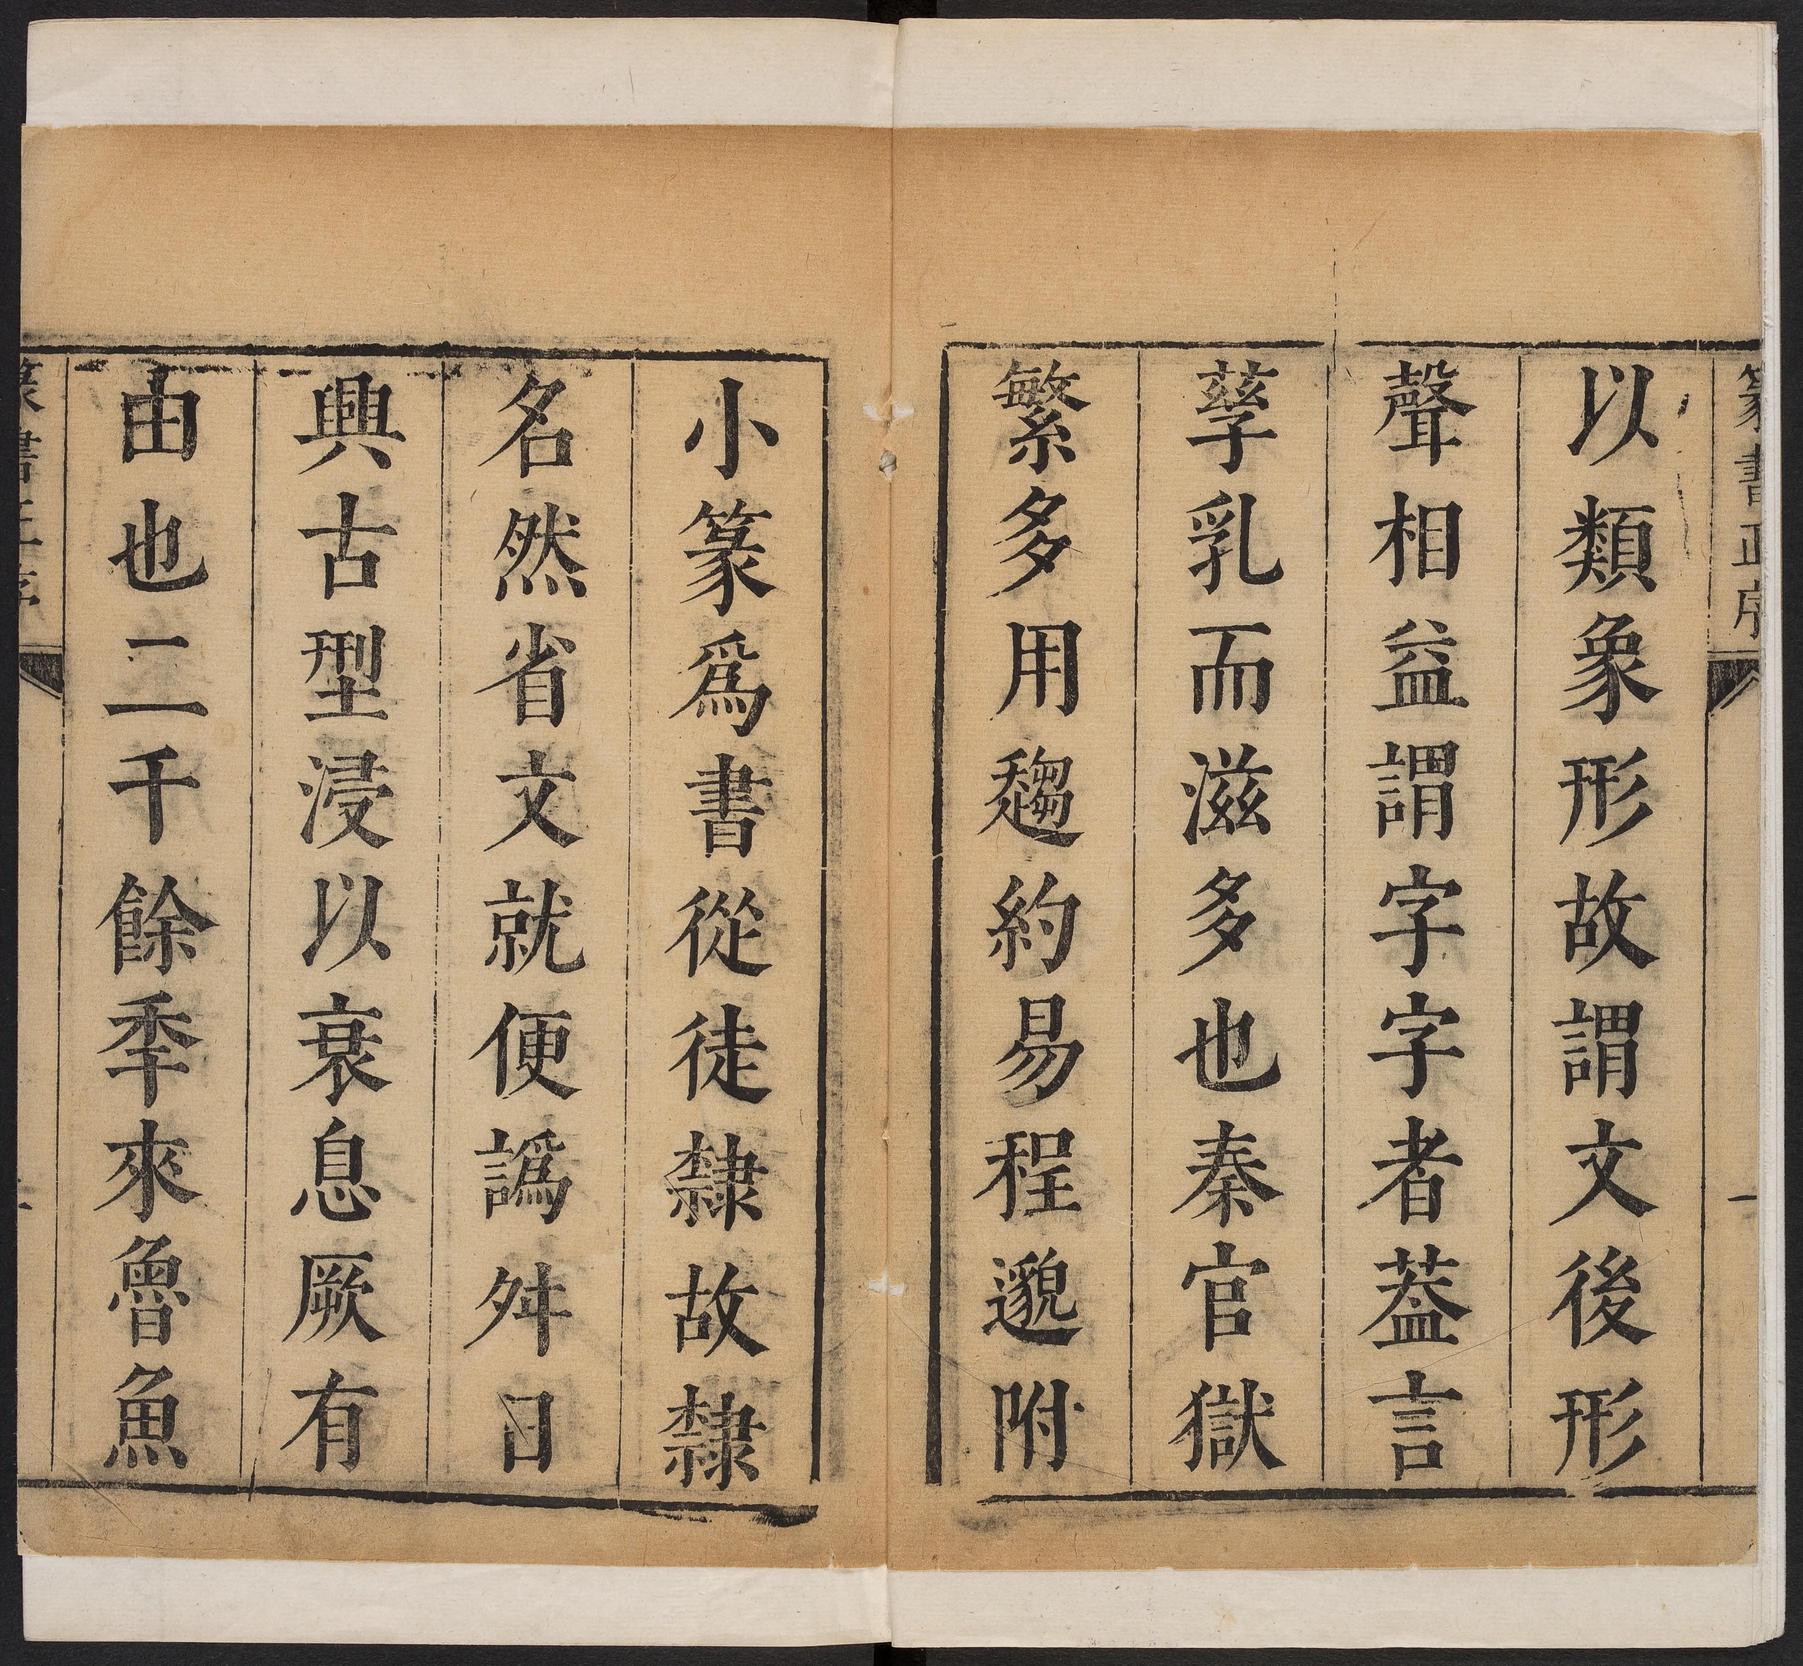 篆書正序
一
以類象形故謂文後形
聲相益謂字字者葢言
孳乳而滋多也秦官獄
繁多用趨約易程邈附
小篆爲書從徒隸故隸
名然省文就便譌舛日
興古型浸以衰息厥有
由也二千餘季來魯魚
篆書正序